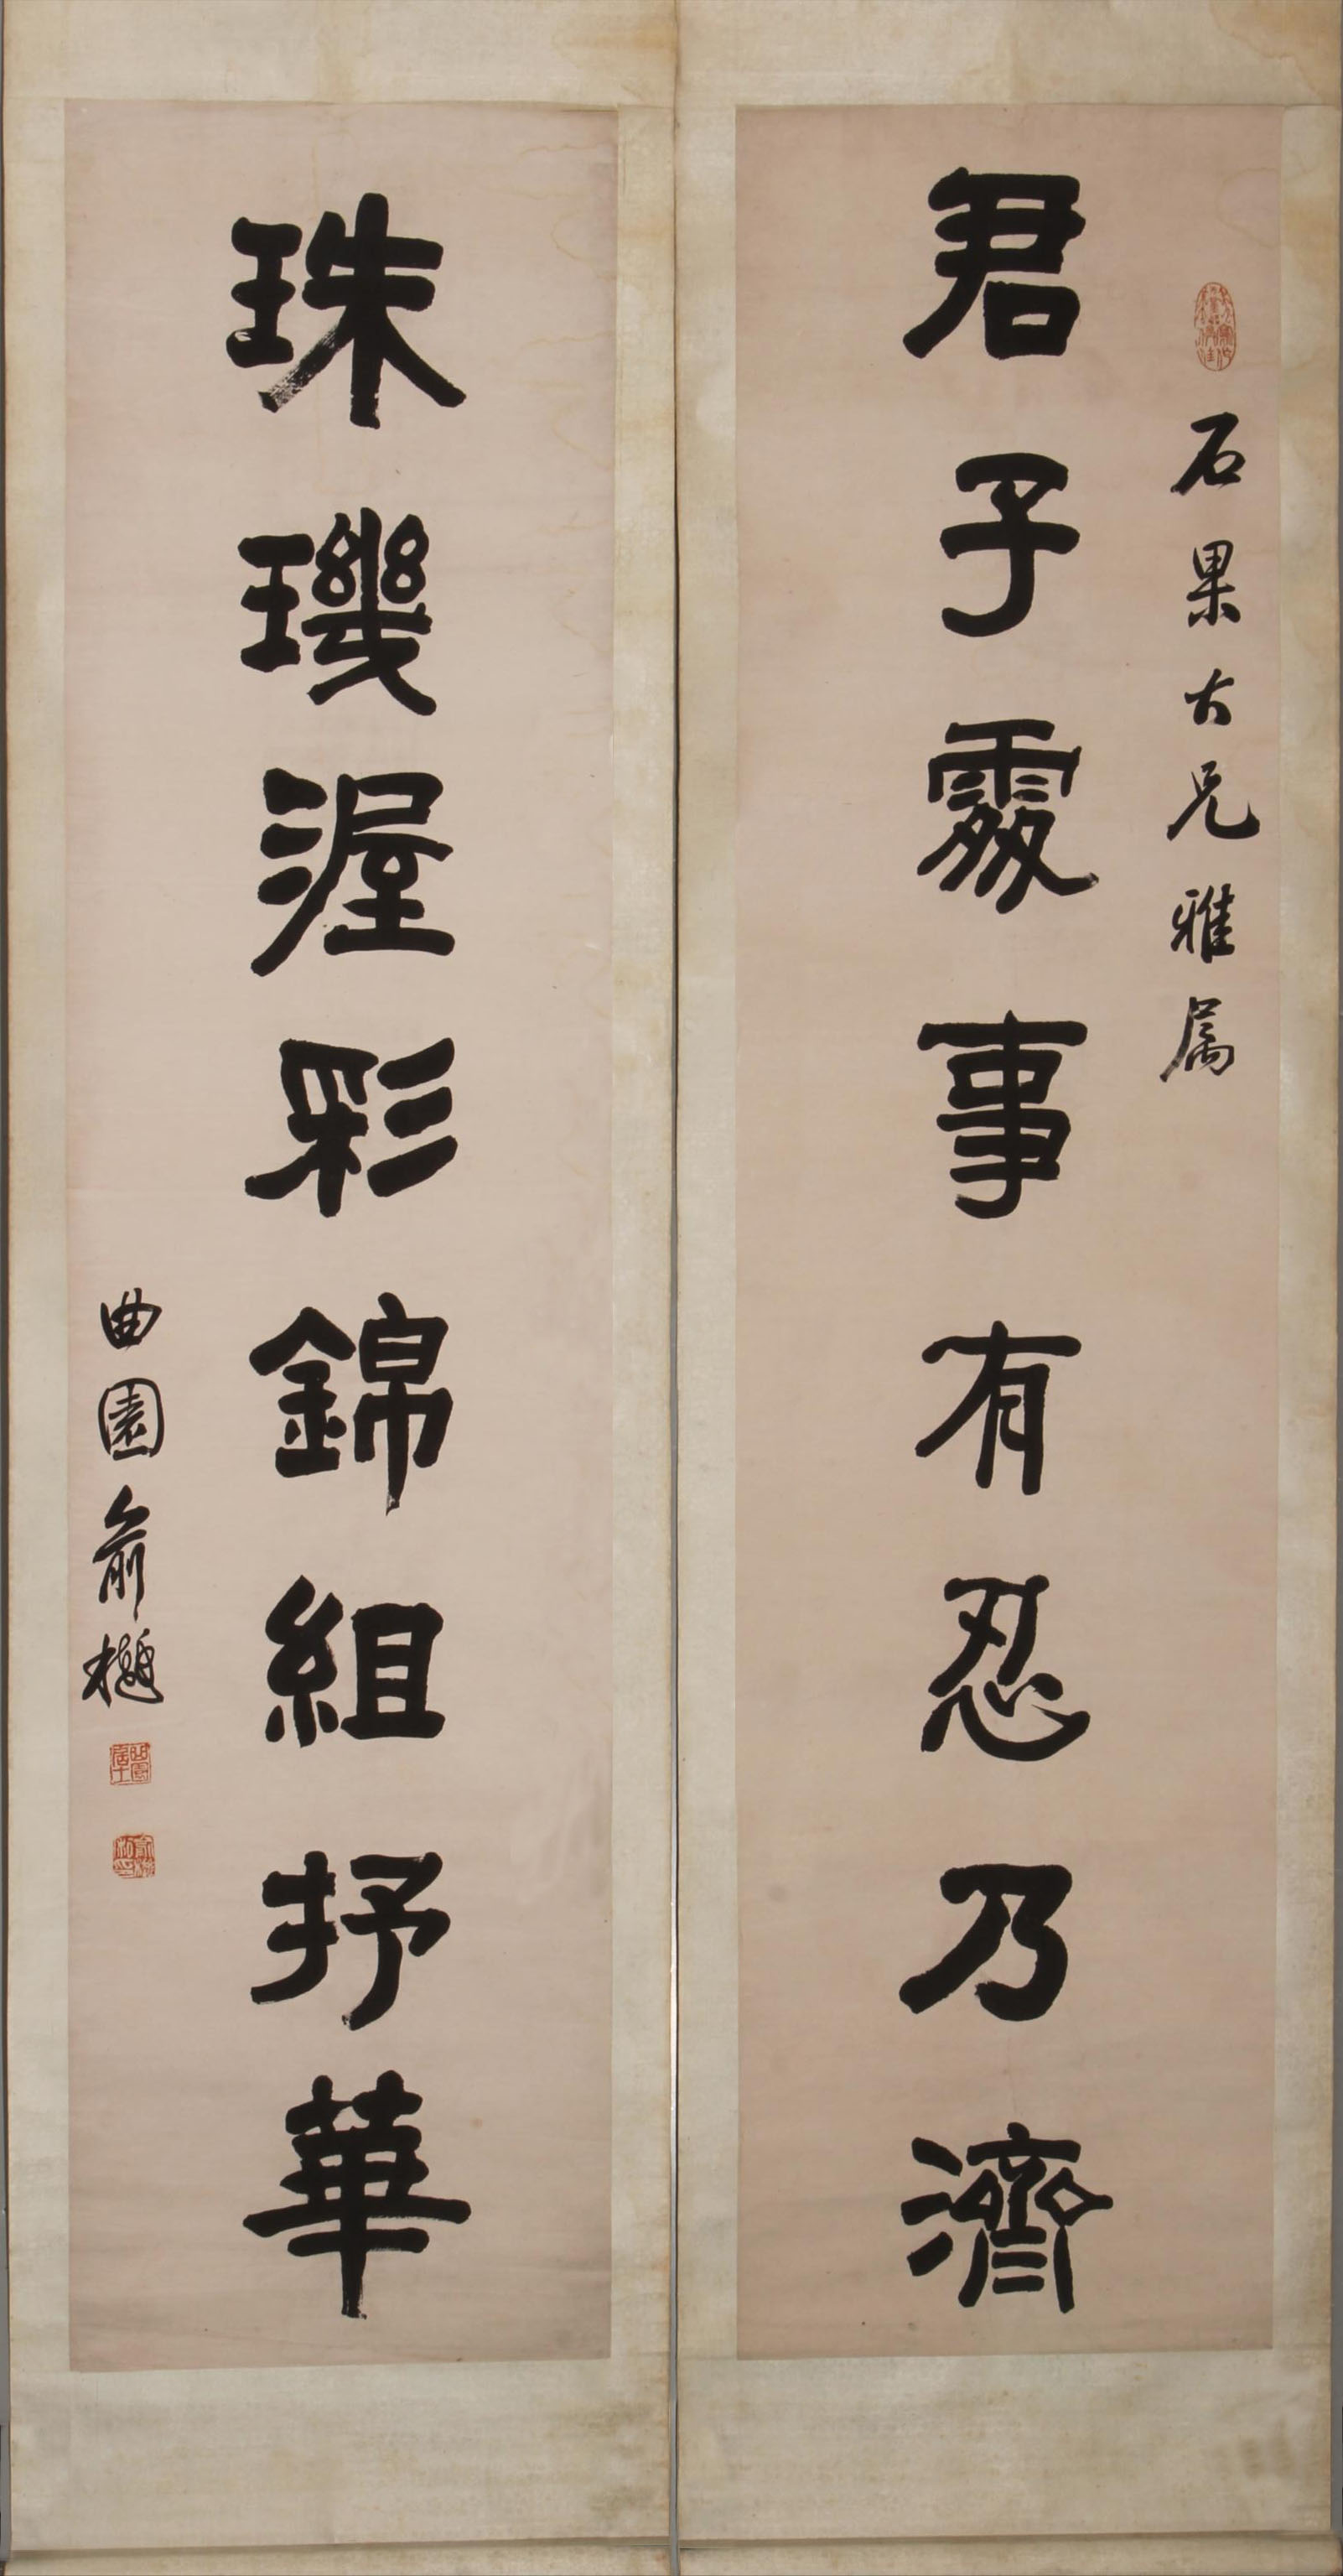 石果大兄雅属
君子處事有忍乃濟
珠璣渥彩錦組抒華
曲園俞樾
曲園居士